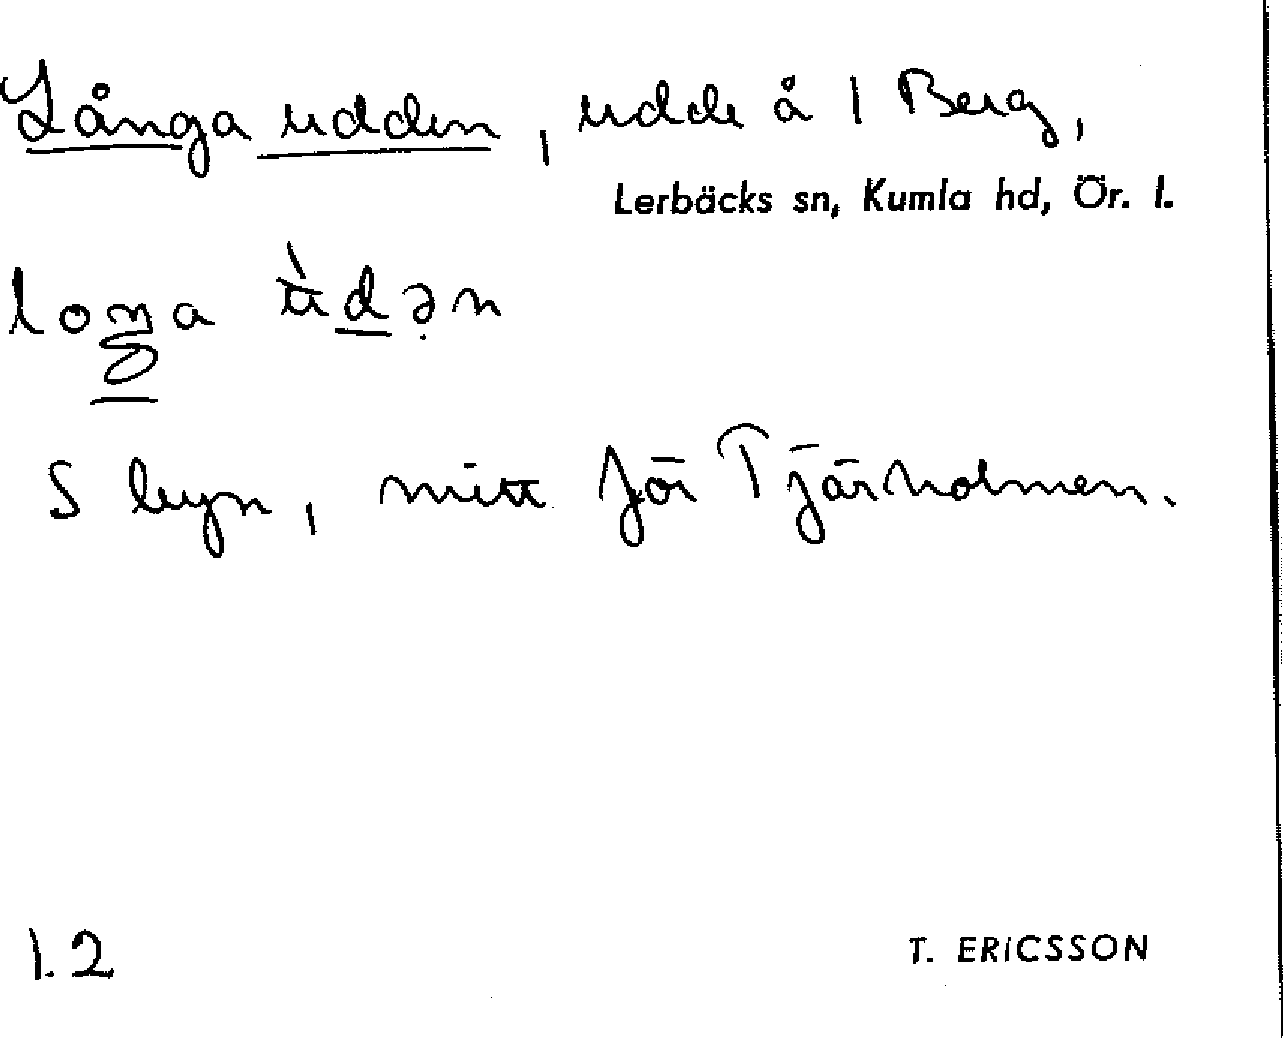 Långa udden, udde å 1 Berg,
Lerbäcks sn, Kumla hd, Ör. l.
loŋa ùdən
S byn, mitt för Tjärholmen.
1.2
T. ERICSSON